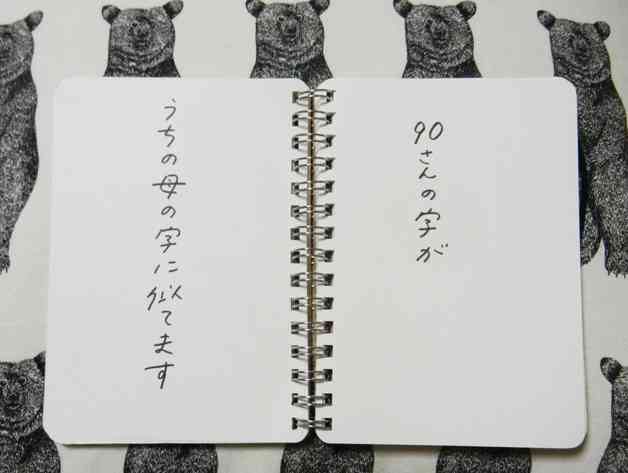 90さんの字が
うちの母の字に似てます